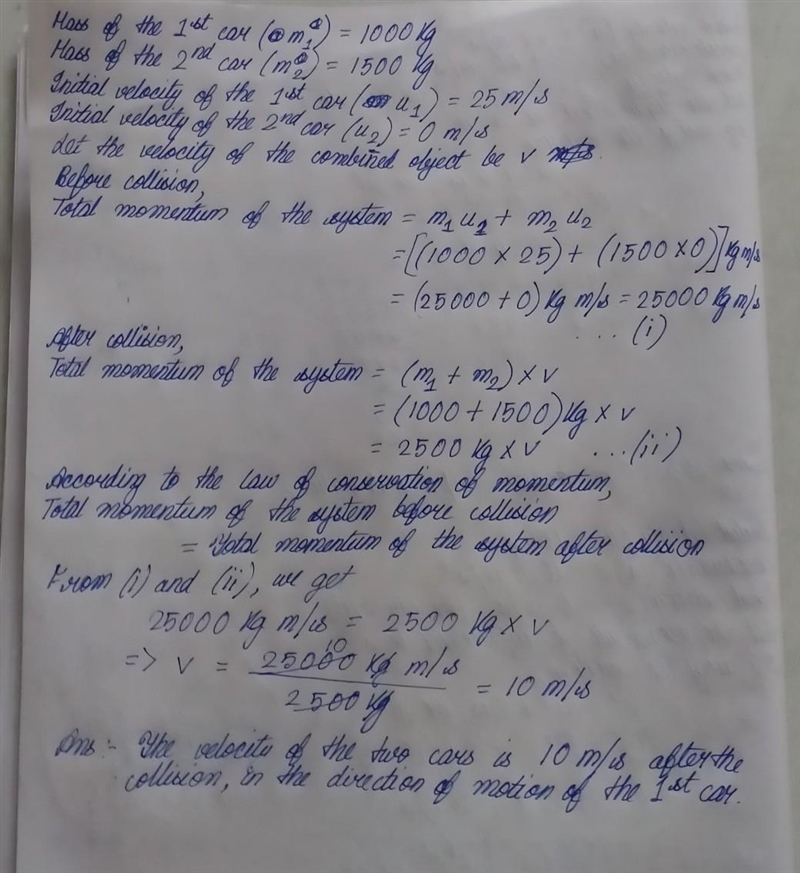 Mass of the 1st car (m₁) = 1000 Kg
Mass of the 2nd car (m₂) = 1500 Kg
Initial velocity of the 1st car (u₁) = 25 m/s
Initial velocity of the 2nd car (u₂) = 0 m/s
Let the velocity of the combined object be v
Before collision,
Total momentum of the system = m₁u₁ + m₂u₂
= [(1000 × 25) + (1500 × 0)] Kg m/s
= (25000 + 0) Kg m/s = 25000 Kg m/s
... (i)
After collision,
Total momentum of the system = (m₁ + m₂) × v
= (1000 + 1500) Kg × v
= 2500 Kg × v ... (ii)
According to the law of conservation of momentum,
Total momentum of the system before collision
= Total momentum of the system after collision
From (i) and (ii), we get
25000 Kg m/s = 2500 Kg × v
10
=> v = 25000 Kg m/s
2500 Kg
= 10 m/s
Ans :- The velocity of the two cars is 10 m/s after the
collision, in the direction of motion of the 1st car.